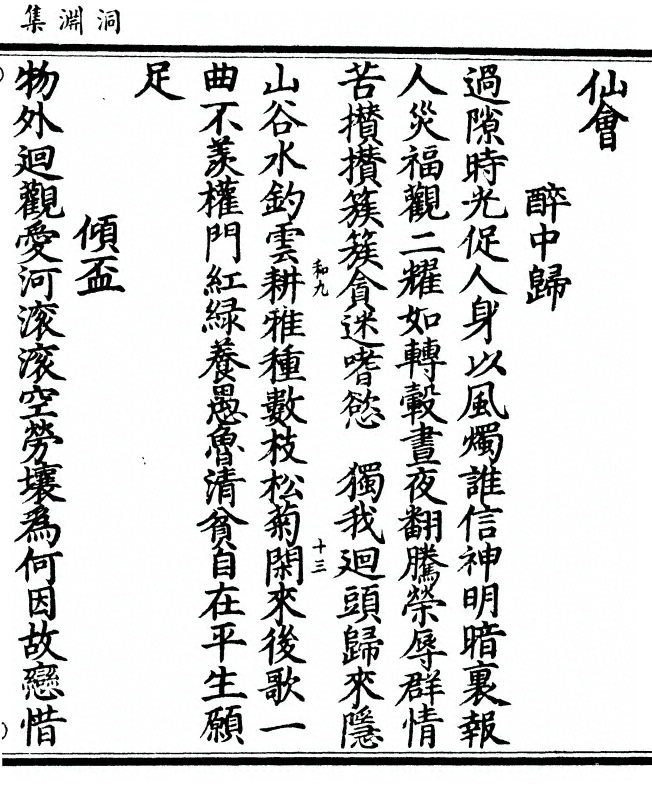 洞淵集
仙會
醉中歸
過隙時光促人身以風燭誰信神明暗裏報
人災福觀二耀如轉轂晝夜翻騰榮辱群情
苦攢攢簇簇貪迷嗜慾　獨我迴頭歸來隱
和九
十三
山谷水釣雲耕雅種數枝松菊閑來後歌一
曲不羨權門紅綠養愚魯清貧自在平生願
足
傾盃
物外迴觀愛河滚滚空勞壤為何因故戀惜